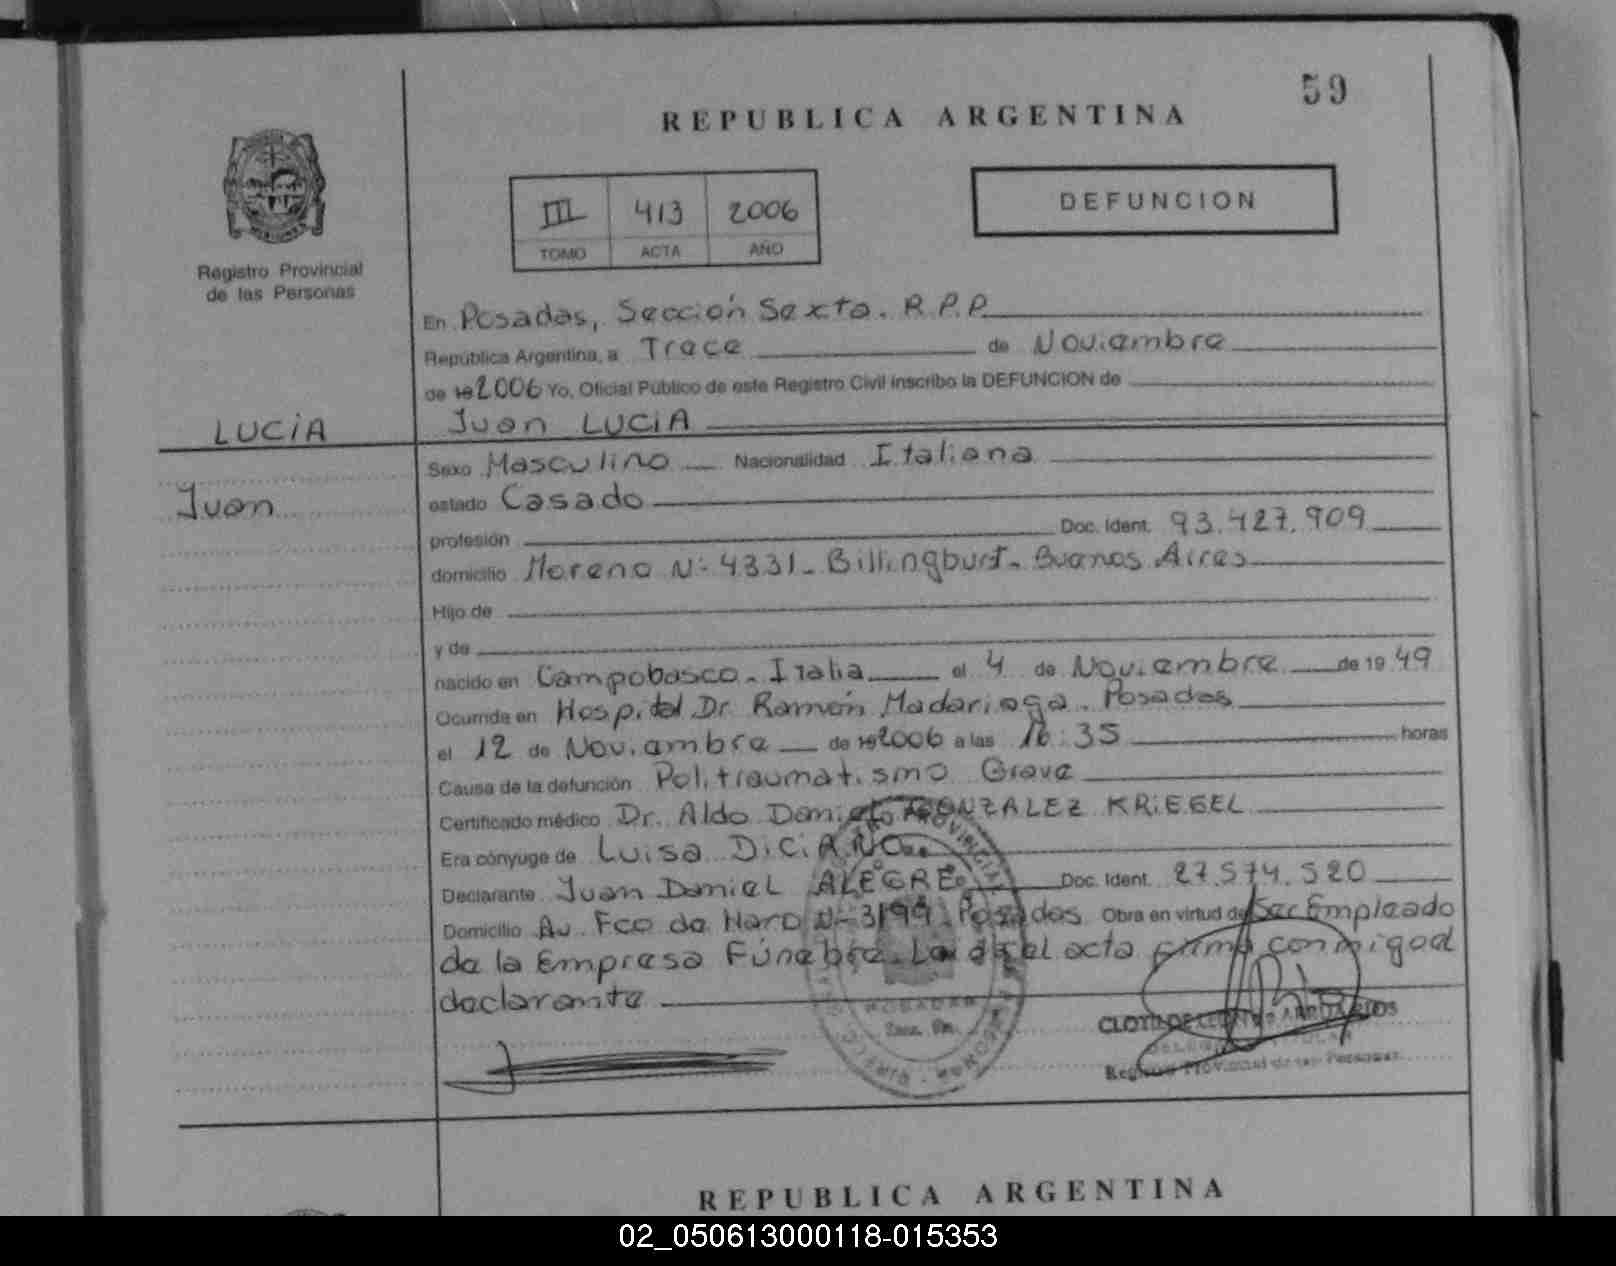 59
REPUBLICA ARGENTINA
III 413 2006
TOMO ACTA AÑO
DEFUNCION
Registro Provincial
de las Personas
En Posadas, Sección Sexta. R.P.P.
República Argentina, a Trece de Noviembre
de 19 2006 Yo, Oficial Público de este Registro Civil inscribo la DEFUNCION de
LUCiA
Juan LUCiA
Sexo Masculino Nacionalidad Italiana
Juan
estado Casado
profesión Doc. Ident. 93.427.909
domicilio Moreno Nº 4331 - Billingburst - Buenos Aires
Hijo de
y de
nacido en Campobasco - Italia el 4 de Noviembre de 19 49
Ocurrida en Hospital Dr. Ramón Madariaga - Posadas
el 12 de Noviembre de 19 2006 a las 16:35 horas
Causa de la defunción Politraumatismo Grave
Certificado médico Dr. Aldo Daniel GONZALEZ KRiEGEL
Era cónyuge de Luisa DiCiANO
Declarante Juan Daniel ALEGRE Doc. Ident. 27.574.520
Domicilio Av. Fco de Haro Nº 3199 - Posadas Obra en virtud de Ser Empleado
de la Empresa Fúnebre. Leída el acta firma conmigo el
declarante
POSADAS
Registro Provincial de las Personas
REPUBLICA ARGENTINA
02_050613000118-015353